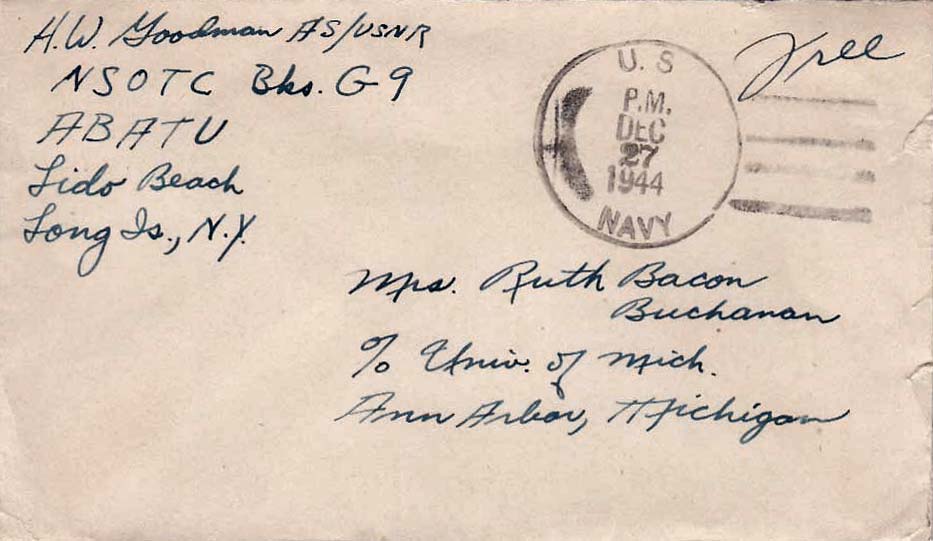 H.W. Goodman AS/USNR
NSOTC Bks. G-9
ABATU
Lido Beach
Long Is., N.Y.
U.S
P.M.
DEC
27
1944
NAVY
Free
Mrs. Ruth Bacon
Buchanan
c/o Univ. of Mich.
Ann Arbor, Michigan